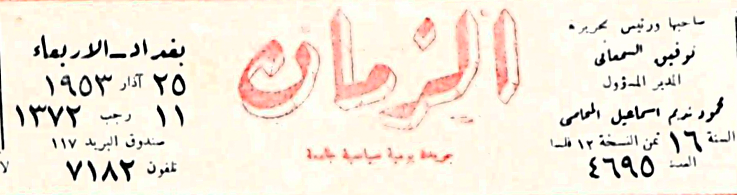 صاحبها ورئيس تحريره
توفيق السمعاني
المدير المسؤول
محمود نديم اسماعيل المحامي
السنة ١٦ ثمن النسخة ١٢ فلسا
العدد ٤٦٩٥
الزمان
جريدة يومية سياسية جامعة
بغداد - الاربعاء
٢٥ آذار ١٩٥٣
١١ رجب ١٣٧٢
صندوق البريد ١١٧
تلفون ٧١٨٢